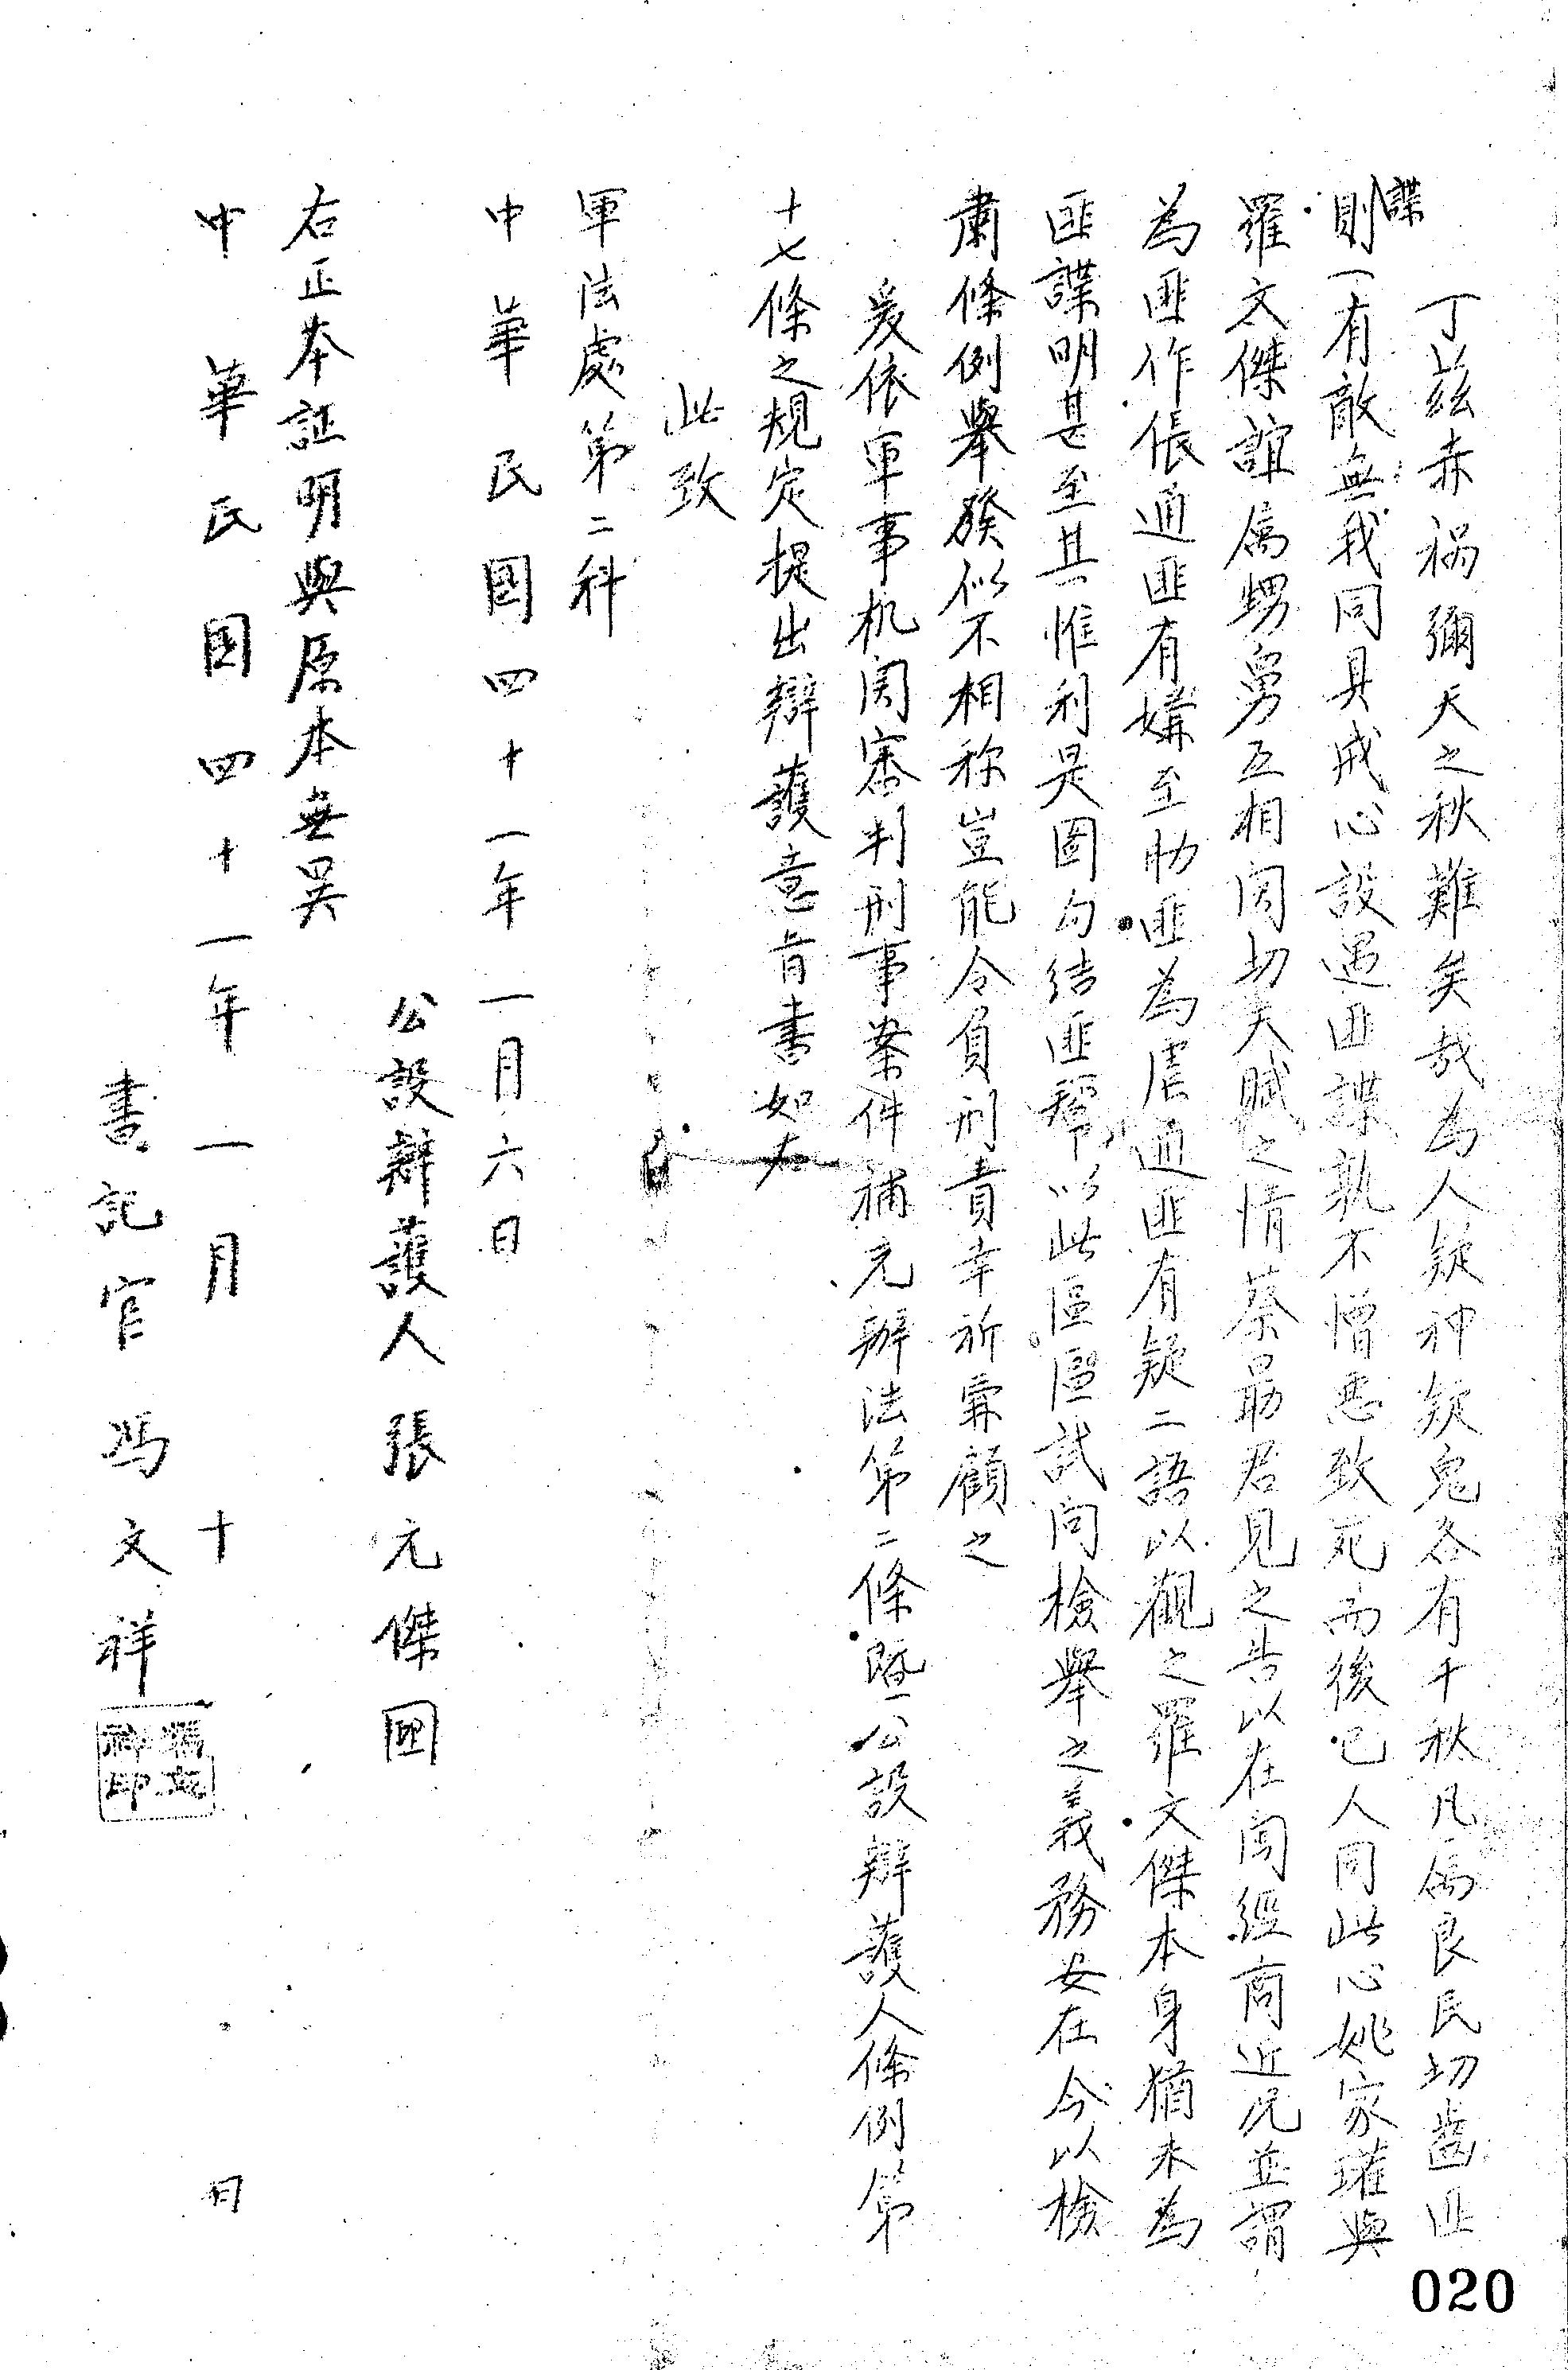 丁茲赤禍彌天之秋難矣哉為人疑神疑鬼各有千秋凡属良民切齒匪
諜則一有敵無我同具戒心設遇匪諜孰不憎惡致死而後已人同此心姚家瓘與
羅文傑誼属甥舅互相関切天賦之情蔡勗君見之告以在閩經商近况並謂
為匪作倀通匪有嫌至助匪為虐通匪有疑二語以觀之羅文傑本身猶未為
匪諜明甚至其惟利是圖勾结匪幫以此區區試问檢舉之義務安在今以檢
肅條例舉發似不相称豈能令負刑責幸祈霁顧之
爰依軍事机関審判刑事案件補充辦法第二條暨公設辯護人條例第
十七條之規定提出辯護意旨書如右
此致
軍法處第二科
中華民國四十一年一月六日
公設辯護人張元傑 印
右正本証明與原本無異
中華民國四十一年一月十日
書記官馮文祥
馮文祥印
020